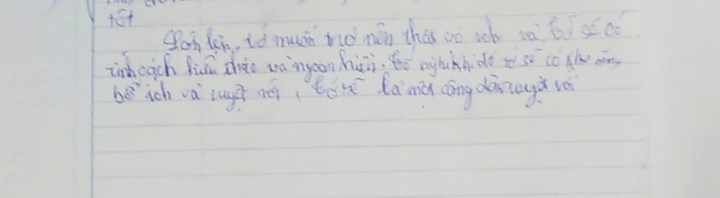 tốt
lớn lên, tớ muốn trở nên có ích và tớ sẽ có
tính cách hiếu thảo và ngoan hiền. tớ nghĩ khi đó tớ sẽ có
bổ ích và tuyệt vời, tớ sẽ là một công dân tuyệt vời